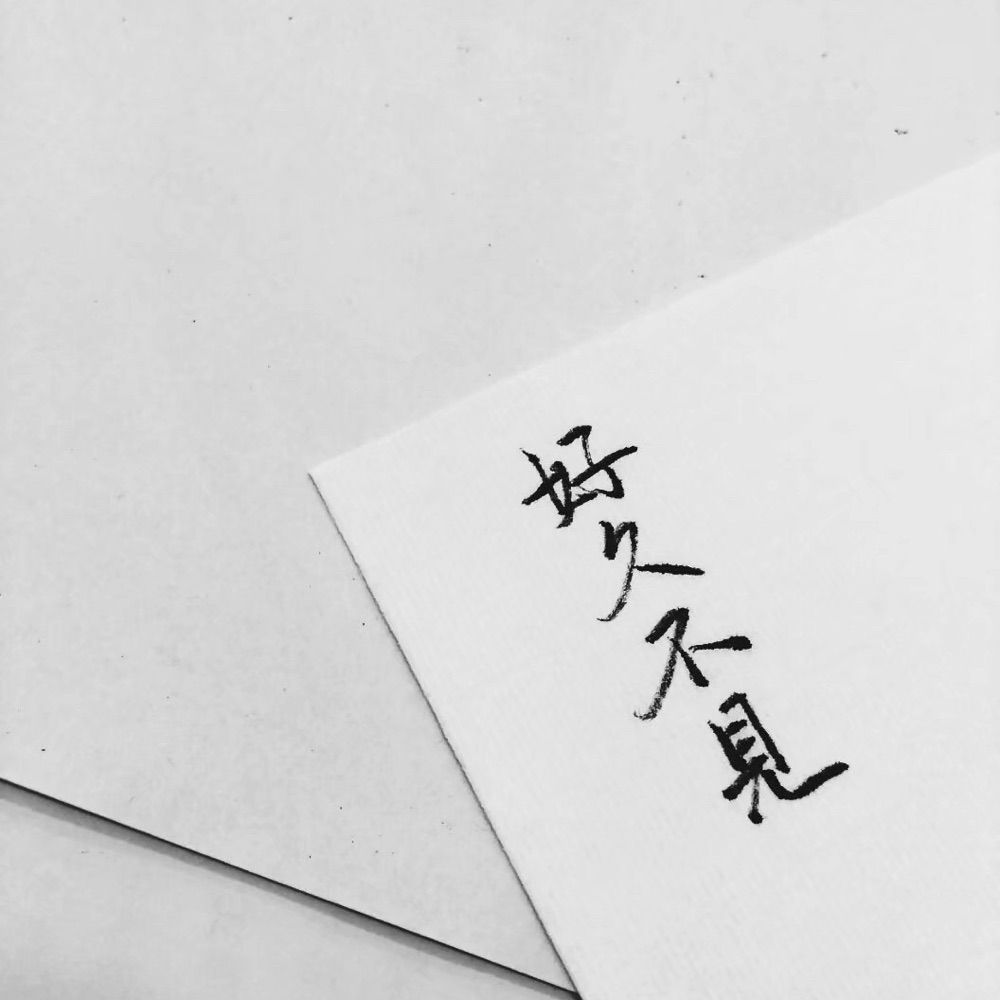 好久不見